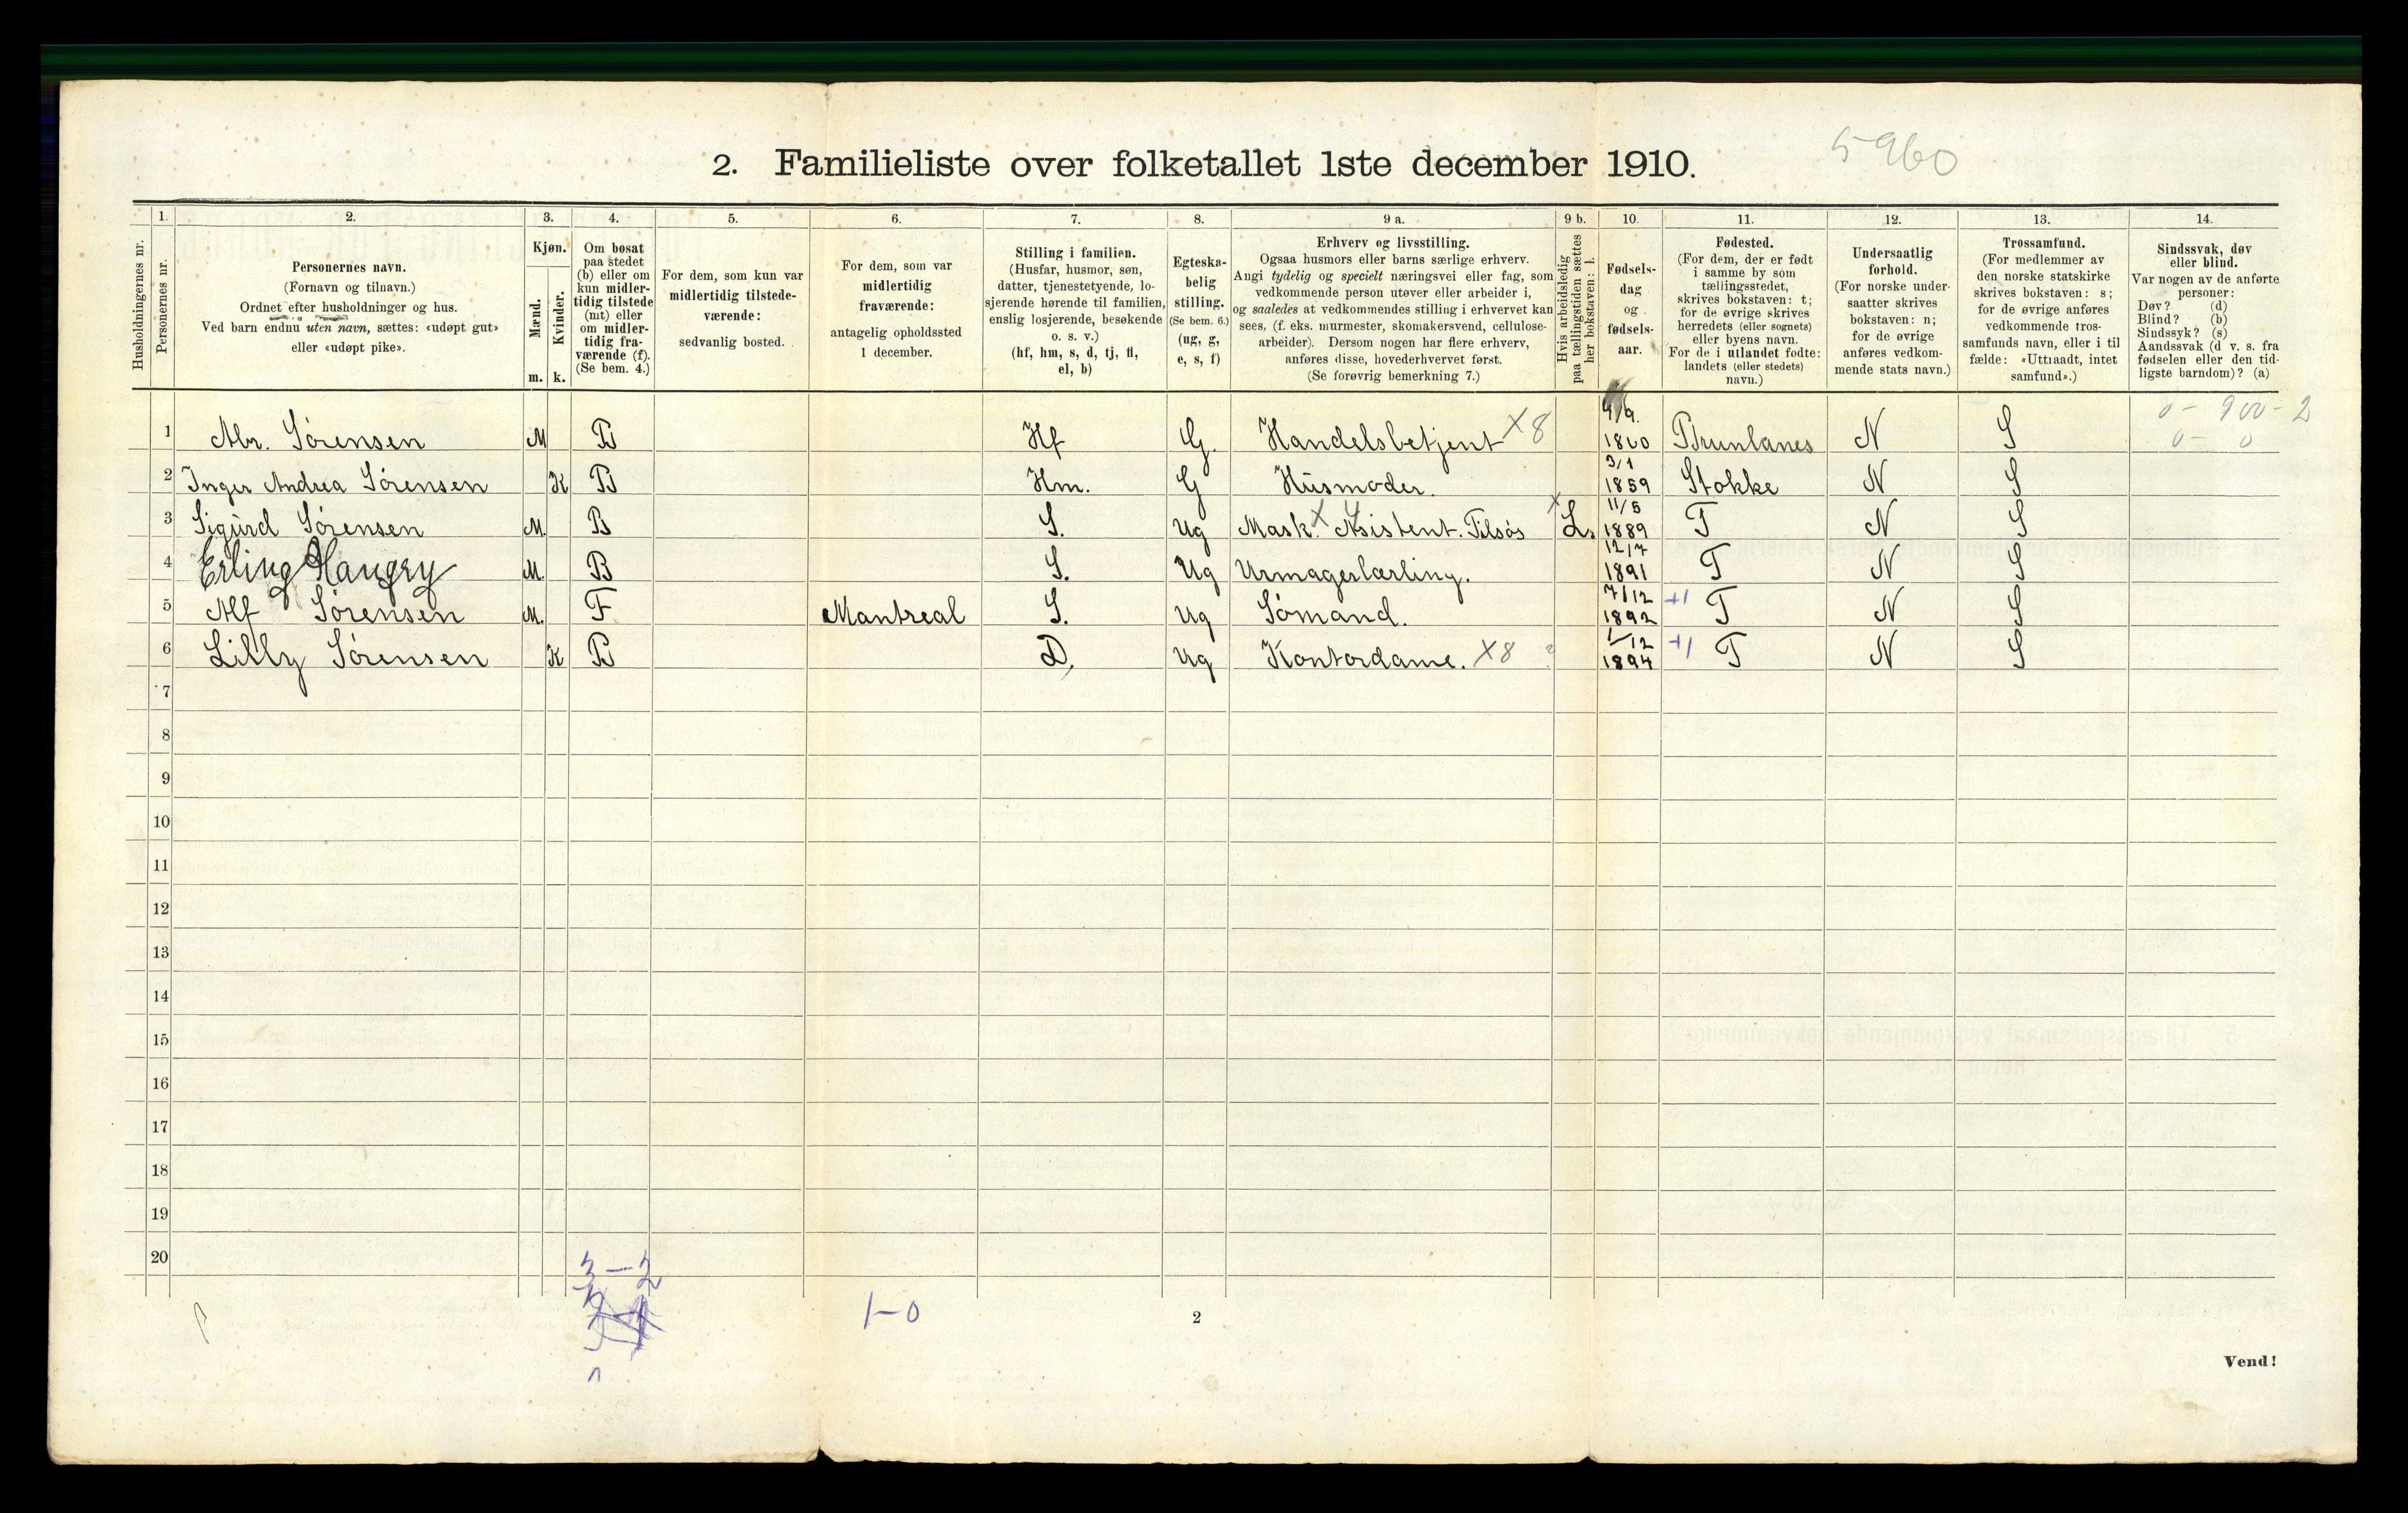 5960
2. Familieliste over folketallet 1ste december 1910.
1. 2. 3. 4. 5. 6. 7. 8. 9 a. 9 b. 10. 11. 12. 13. 14.
Husholdningernes nr.
Personernes nr.
Personernes navn.
(Fornavn og tilnavn.)
Ordnet efter husholdninger og hus.
Ved barn endnu uten navn, sættes: «udøpt gut»
eller «udøpt pike».
Kjøn.
Mænd.
Kvinder.
m. k.
Om bosat
paa stedet
(b) eller om
kun midler-
tidig tilstede
(mt) eller
om midler-
tidig fra-
værende (f).
(Se bem. 4.)
For dem, som kun var
midlertidig tilstede-
værende:
sedvanlig bosted.
For dem, som var
midlertidig
fraværende:
antagelig opholdssted
1 december.
Stilling i familien.
(Husfar, husmor, søn,
datter, tjenestetyende, lo-
sjerende hørende til familien,
enslig losjerende, besøkende
o. s. v.)
(hf, hm, s, d, tj, fl,
el, b)
Egteska-
belig
stilling.
(Se bem. 6.)
(ug, g,
e, s, f)
Erhverv og livsstilling.
Ogsaa husmors eller barns særlige erhverv.
Angi tydelig og specielt næringsvei eller fag, som
vedkommende person utøver eller arbeider i,
og saaledes at vedkommendes stilling i erhvervet kan
sees, (f. eks. murmester, skomakersvend, cellulose-
arbeider). Dersom nogen har flere erhverv,
anføres disse, hovederhvervet først.
(Se forøvrig bemerkning 7.)
Hvis arbeidsledig
paa tællingstiden sættes
her bokstaven: l.
Fødsels-
dag
og
fødsels-
aar.
Fødested.
(For dem, der er født
i samme by som
tællingsstedet,
skrives bokstaven: t;
for de øvrige skrives
herredets (eller sognets)
eller byens navn.
For de i utlandet fødte:
landets (eller stedets)
navn.)
Undersaatlig
forhold.
(For norske under-
saatter skrives
bokstaven: n;
for de øvrige
anføres vedkom-
mende stats navn.)
Trossamfund.
(For medlemmer av
den norske statskirke
skrives bokstaven: s;
for de øvrige anføres
vedkommende tros-
samfunds navn, eller i til
fælde: «Uttraadt, intet
samfund».)
Sindssvak, døv
eller blind.
Var nogen av de anførte
personer:
Døv? (d)
Blind? (b)
Sindssyk? (s)
Aandssvak (d v. s. fra
fødselen eller den tid-
ligste barndom)? (a)
0- 900-2
0- 0
1 Abr. Sørensen M B Hf G. Handelsbetjent X8 4/9. 1860 Brunlanes N S
2 Inger Andrea Sørensen K B Hm. G Husmoder. 3/1 1859 Stokke N S
3 Sigurd Sørensen M. B S. ug Mask. X 4 Asistent. Tilsøs X L. 11/5 1889 T N S
4 Erling Haugry M. B S. Ug Urmagerlærling. 12/7 1891 T N S
5 Alf Sørensen M. F Mantreal S. ug Sömand. 7/12 1892 +1 T N S
6 Lilly Sørensen K B D, ug Kontordame. X8 1/12 1894 +1 T N S
7
8
9
10
11
12
13
14
15
16
17
18
19
20
3-2
1-0
2
Vend!